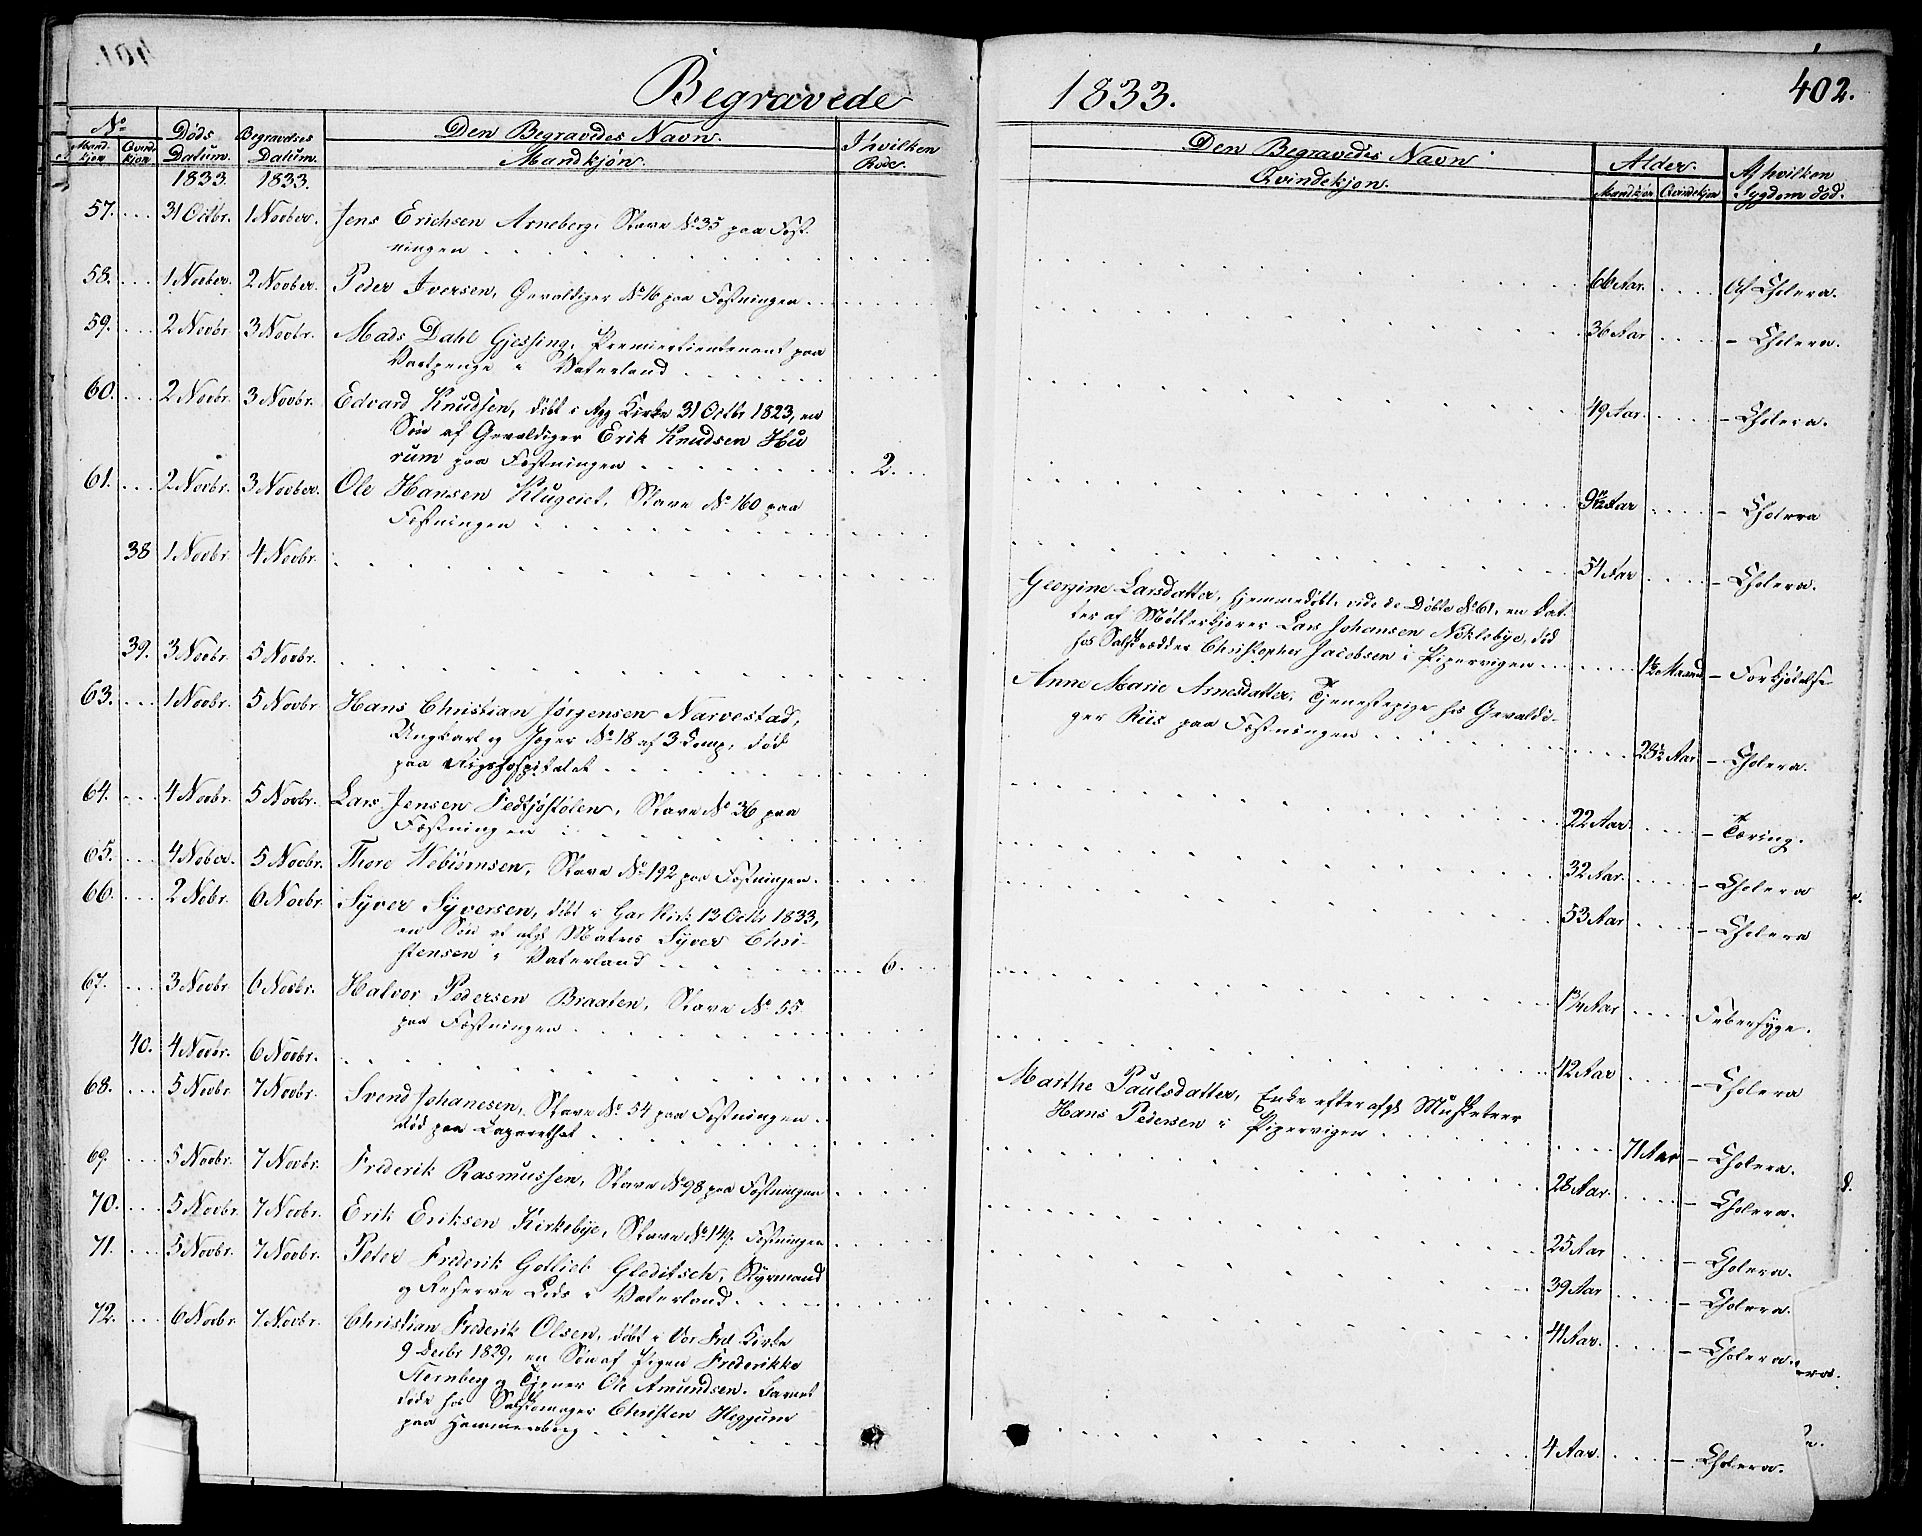 Begravede
1833.
402.
No
Mandkjøn
Qvindekjøn
Døds Datum.
Begravelses Datum.
Den Begravedes Navn.
Mandkjøn.
I hvilken Rode.
Den Begravedes Navn
Qvindekjøn.
Alder.
Mandkjøn Qvindekjøn
Af hvilken Sygdom død.
1833. 1833.
57. 31 Octbr. 1 Novber. Jens Erichsen Arneberg, Slave No 35 paa Fæst-
ningen 66 Aar. Af Cholera.
58. 1 Novber. 2 Novber. Peder Iversen, Gevaldiger No 16 paa Fæstningen 36 Aar - Cholera.
59. 2 Novbr. 3 Novbr. Mads Dahl Gjessing, Premierlieutenant paa
Vartpenge i Vaterland 49 Aar. - Cholera.
60. 2 Novbr. 3 Novbr. Edvard Knudsen, døbt i Agg Kirke 31 Octbr 1823, en
Søn af Gevaldiger Erik Knudsen Hu
rum paa Fæstningen 2. 9 11/12 Aar - Cholera
61. 2 Novbr. 3 Novber. Ole Hansen Klugeiet, Slave No 160 paa
Fæstningen 54 Aar - Cholera.
38 1 Novbr. 4 Novbr. Georgine Larsdatter, hjemmedøbt, vide de Døbte No 61, en Dat-
ter af Møllerkjører Lars Johansen Noklebye, død
hos Skrædder Christopher Jacobsen i Pipervigen 1½ Maaned - Forkjølelse
39. 3 Novbr. 5 Novbr. Anne Marie Arnesdatter, Tjenestepige hos Gevaldi-
ger Riis paa Fæstningen 23½ Aar - Cholera.
63. 1 Novbr. 5 Novbr Hans Christian Jørgensen Narvestad,
Ungkarl og Jæger No 18 af 3 Comp, død
paa Rigshospitalet 22 Aar. - Tæring.
64. 4 Novbr. 5 Novbr. Lars Jensen Fedtjøstølen, Slave No 36 paa
Fæstningen 32 Aar. - Cholera
65. 4 Nober. 5 Novbr. Thore Webiømsen, Slave No 192 paa Fæstningen. 53 Aar - Cholera
66. 2 Nobr. 6 Novbr. Syver Syversen, døbt i Gar Kirk 13 Octbr 1833,
en Søn af afgk Matros Syver Chri-
stensen i Vaterland 6. 1¾ Aar Febersyge.
67. 3 Novbr 6 Novbr. Halvor Pedersen Braaten, Slave No 55
paa Fæstningen 42 Aar - Cholera
40. 4 Novbr. 6 Novbr. Marthe Paulsdatter, Enke efter afgk Musketeer
Hans Pedersen i Pipervigen 71 Aar - Cholera.
68. 5 Novbr 7 Novbr. Svend Johanesen, Slave No 54 paa Fæstningen
død paa Lazarethet 28 Aar. - Cholera.
69. 5 Novbr. 7 Novbr. Frederik Rasmussen, Slave No 98 paa Fæstningen 25 Aar - Cholera.
70. 5 Novbr. 7 Novbr. Erik Eriksen Kirkebye, Slave No 149. Fæstningen 39 Aar - Cholera.
71. 5 Novbr. 7 Novbr. Peter Frederik Gotlieb Gleditsch, Styrmand
og Reserve Lods i Vaterland. 41 Aar. - Cholera.
72. 6 Novbr. 7 Novbr. Christian Frederik Olsen, døbt i Vor Frel Kirke
9 Decbr 1829, en Søn af Pigen Frederikke
Sternberg og Tjener Ole Amundsen. Barnet
døde hos Skomager Christen Heggum
paa Hammersborg 4 Aar. - Cholera.